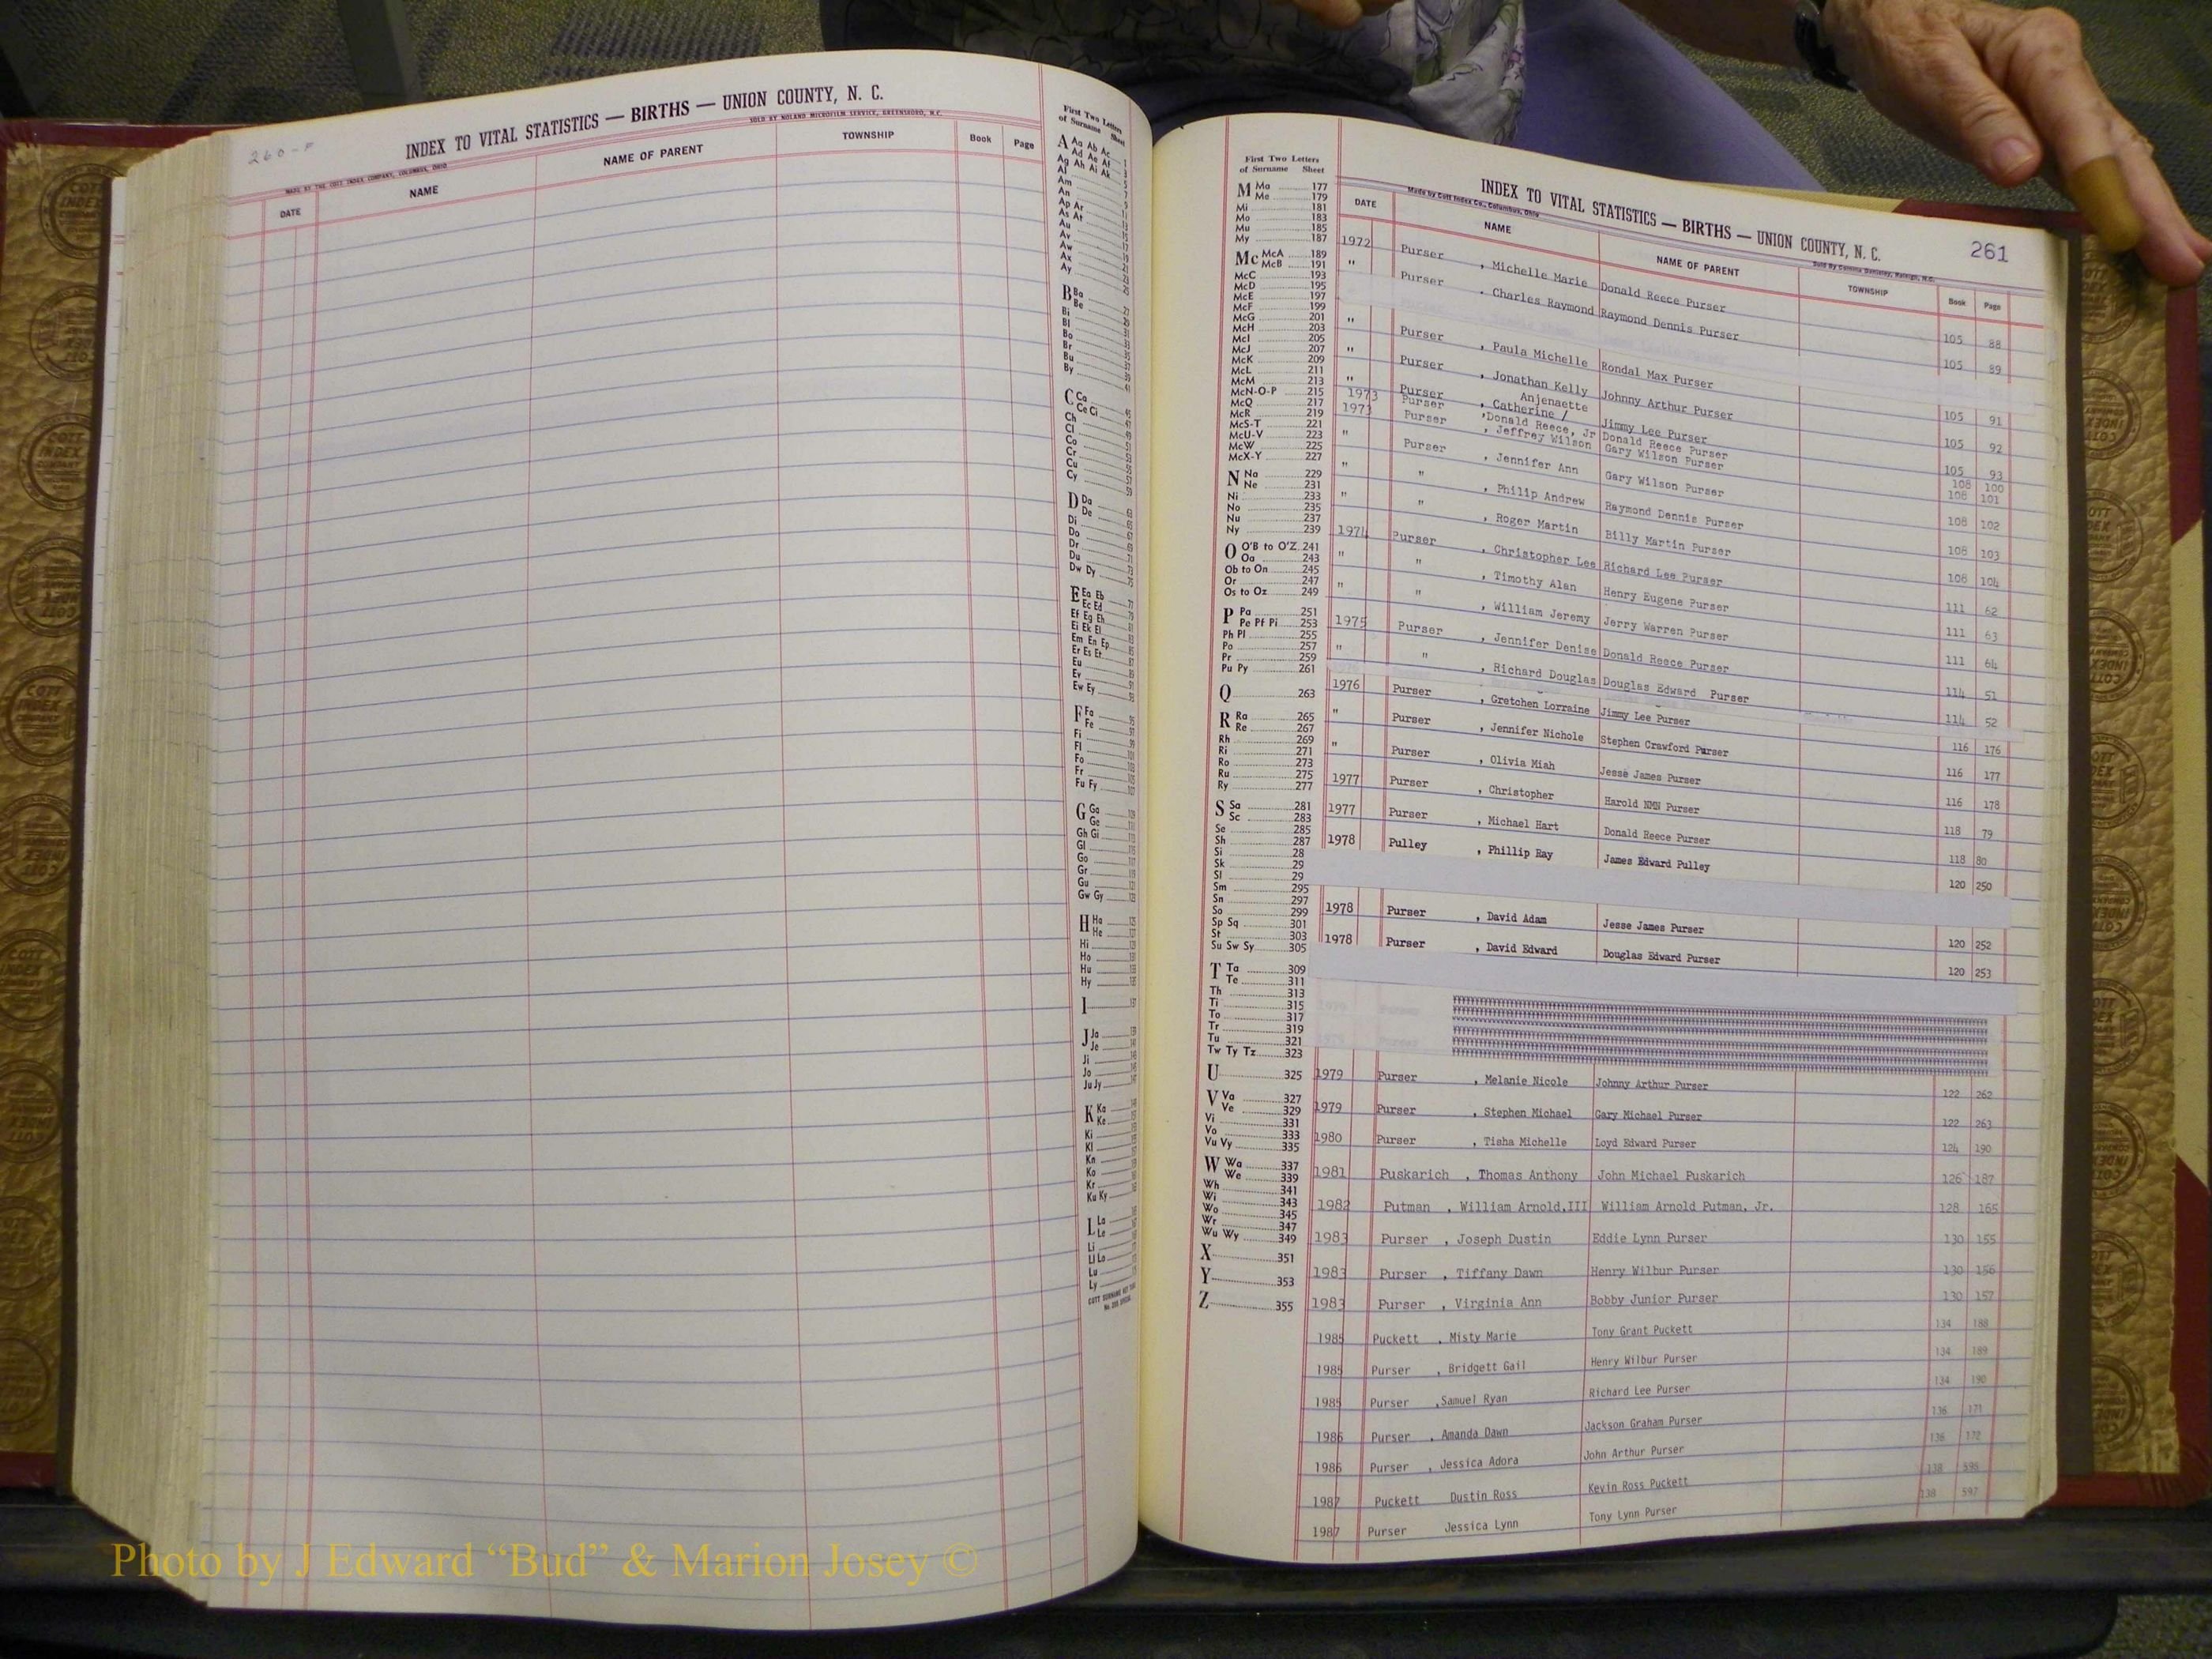 260-F
INDEX TO VITAL STATISTICS — BIRTHS — UNION COUNTY, N. C.
SOLD BY NOLAND MICROFILM SERVICE, GREENSBORO, N.C.
MADE BY THE COTT INDEX COMPANY, COLUMBUS, OHIO
DATE NAME NAME OF PARENT TOWNSHIP Book Page
First Two Letters
of Surname Sheet
A Aa Ab Ac 1
Ad Ae Af 3
Ag Ah Ai Ak 5
Al
Am
An
Ap Ar
As At
Au
Av
Aw
Ax
Ay
B Ba
Be
Bi
Bl
Bo
Br
Bu
By
C Ca
Ce Ci
Ch
Cl
Co
Cr
Cu
Cy
D Da
De
Di
Do
Dr
Du
Dw Dy
E Ea Eb
Ec Ed
Ef Eg Eh
Ei Ek El
Em En Ep
Er Es Et
Eu
Ev
Ew Ey
F Fa
Fe
Fi
Fl
Fo
Fr
Fu Fy
G Ga
Ge
Gh Gi
Gl
Go
Gr
Gu
Gw Gy
H Ha
He
Hi
Ho
Hu
Hy
I
J Ja
Je
Ji
Jo
Ju Jy
K Ka
Ke
Ki
Kl
Kn
Ko
Kr
Ku Ky
L La
Le
Li
Ll Lo
Lu
Ly
First Two Letters
of Surname Sheet
M Ma 177
Me 179
Mi 181
Mo 183
Mu 185
My 187
Mc McA 189
McB 191
McC 193
McD 195
McE 197
McF 199
McG 201
McH 203
McI 205
McJ 207
McK 209
McL 211
McM 213
McN-O-P 215
McQ 217
McR 219
McS-T 221
McU-V 223
McW 225
McX-Y 227
N Na 229
Ne 231
Ni 233
No 235
Nu 237
Ny 239
O O'B to O'Z 241
Oa 243
Ob to On 245
Or 247
Os to Oz 249
P Pa 251
Pe Pf Pi 253
Ph Pl 255
Po 257
Pr 259
Pu Py 261
Q 263
R Ra 265
Re 267
Rh 269
Ri 271
Ro 273
Ru 275
Ry 277
S Sa 281
Sc 283
Se 285
Sh 287
Si 28
Sk 29
Sl 29
Sm 295
Sn 297
So 299
Sp Sq 301
St 303
Su Sw Sy 305
T Ta 309
Te 311
Th 313
Ti 315
To 317
Tr 319
Tu 321
Tw Ty Tz 323
U 325
V Va 327
Ve 329
Vi 331
Vo 333
Vu Vy 335
W Wa 337
We 339
Wh 341
Wi 343
Wo 345
Wr 347
Wu Wy 349
X 351
Y 353
Z 355
INDEX TO VITAL STATISTICS — BIRTHS — UNION COUNTY, N. C. 261
Made by Cott Index Co., Columbus, Ohio
DATE NAME NAME OF PARENT TOWNSHIP Book Page
1972 Purser , Michelle Marie Donald Reece Purser 105 88
" Purser , Charles Raymond Raymond Dennis Purser 105 89
" Purser , Paula Michelle Rondal Max Purser 105 91
" Purser , Jonathan Kelly Johnny Arthur Purser 105 92
Anjenaette
" Purser , Catherine / Jimmy Lee Purser 105 93
1973 Purser , Donald Reece, Jr Donald Reece Purser 108 100
1973 Purser , Jeffrey Wilson Gary Wilson Purser 108 101
" Purser , Jennifer Ann Gary Wilson Purser 108 102
" " , Philip Andrew Raymond Dennis Purser 108 103
" " , Roger Martin Billy Martin Purser 108 104
1974 Purser , Christopher Lee Richard Lee Purser 111 62
" " , Timothy Alan Henry Eugene Purser 111 63
" " , William Jeremy Jerry Warren Purser 111 64
1975 Purser , Jennifer Denise Donald Reece Purser 114 51
" " , Richard Douglas Douglas Edward Purser 114 52
1976 Purser , Gretchen Lorraine Jimmy Lee Purser 116 176
" Purser , Jennifer Nichole Stephen Crawford Purser 116 177
" Purser , Olivia Miah Jesse James Purser 116 178
1977 Purser , Christopher Harold NMN Purser 118 79
1977 Purser , Michael Hart Donald Reece Purser 118 80
1978 Pulley , Phillip Ray James Edward Pulley 120 250
1978 Purser , David Adam Jesse James Purser 120 252
1978 Purser , David Edward Douglas Edward Purser 120 253
1979 Purser , Melanie Nicole Johnny Arthur Purser 122 262
1979 Purser , Stephen Michael Gary Michael Purser 122 263
1980 Purser , Tisha Michelle Loyd Edward Purser 124 190
1981 Puskarich , Thomas Anthony John Michael Puskarich 126 187
1982 Putman , William Arnold,III William Arnold Putman, Jr. 128 165
1983 Purser , Joseph Dustin Eddie Lynn Purser 130 155
1983 Purser , Tiffany Dawn Henry Wilbur Purser 130 156
1983 Purser , Virginia Ann Bobby Junior Purser 130 157
1985 Puckett , Misty Marie Tony Grant Puckett 134 188
1985 Purser , Bridgett Gail Henry Wilbur Purser 134 189
1985 Purser , Samuel Ryan Richard Lee Purser 134 190
1986 Purser , Amanda Dawn Jackson Graham Purser 136 171
1986 Purser , Jessica Adora John Arthur Purser 136 172
1987 Puckett Dustin Ross Kevin Ross Puckett 138
1987 Purser Jessica Lynn Tony Lynn Purser 138 597
Photo by J Edward “Bud” & Marion Josey ©